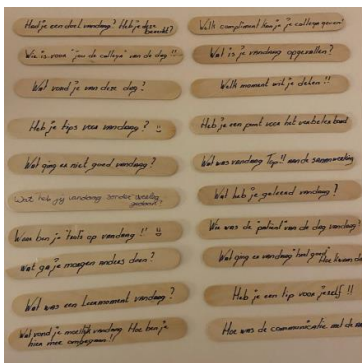 Had je een doel vandaag? Heb je deze
behaald?
Wie is voor jou de collega van de dag!!
Wat vond je van deze dag?
Heb je tips voor vandaag?
Wat ging er niet goed vandaag?
Wat heb jij vandaag zonder overleg
gedaan?
Waar ben je "trots" op vandaag!!
Wat ga je morgen anders doen?
Wat was een leermoment vandaag?
Wat vond je moeilijk vandaag. Hoe ben je
hier mee omgegaan!!
Welk compliment kan je je collega geven?
Wat is je vandaag opgevallen?
Welk moment wil je delen!!
Heb je een punt voor het verbeterbord
Wat was vandaag Top!! aan de samenwerking
Wat heb je geleerd vandaag?
Wie was de "patient" van de dag vandaag?
Wat ging er vandaag "heel goed" Hoe kwam
Heb je een tip voor jezelf!!
Hoe was de communicatie met de